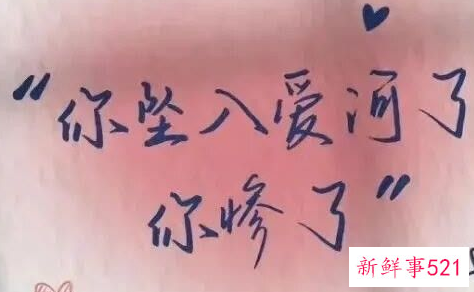 “你坠入爱河了
你惨了”
新鲜事521